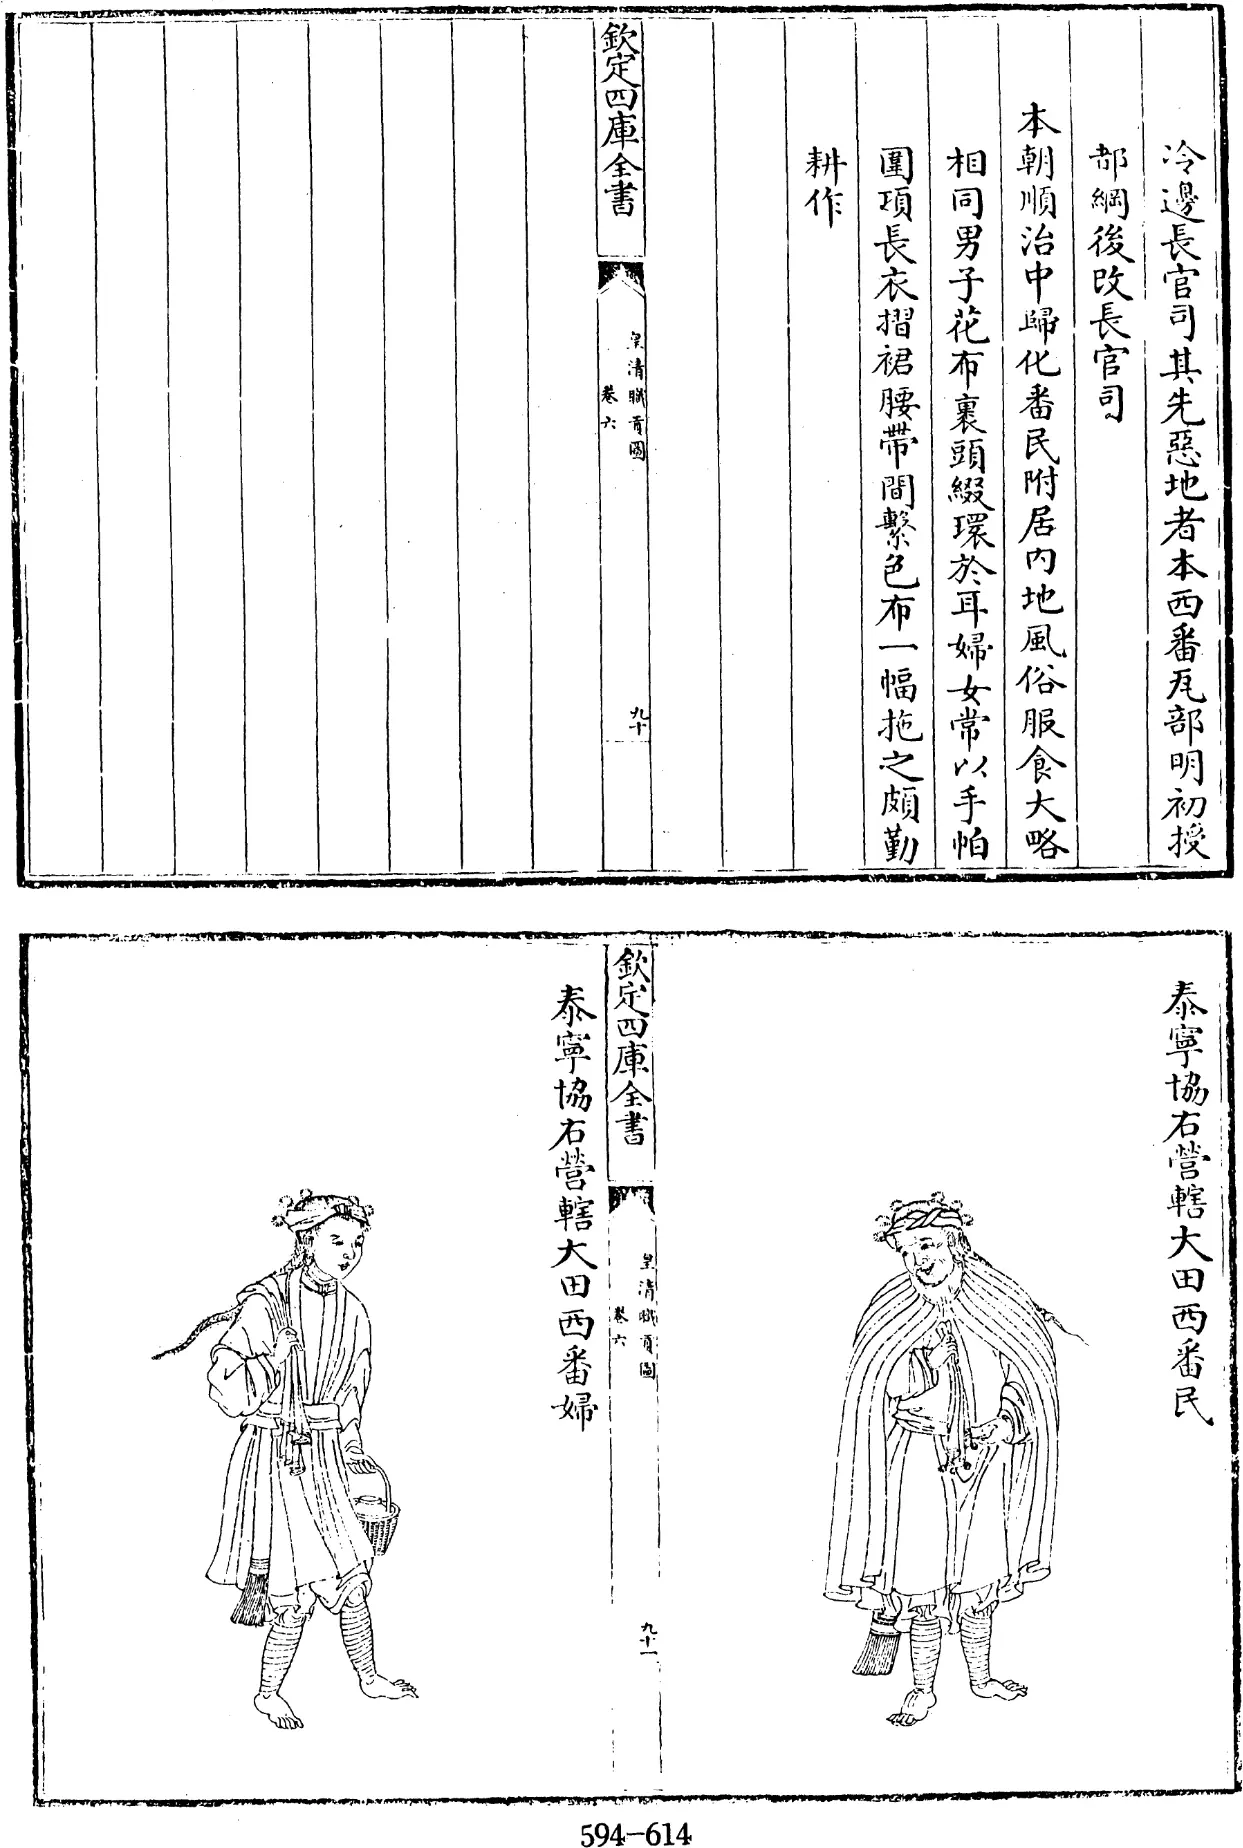 冷邊長官司其先惡地者本西番瓦部明初授
都綱後改長官司
本朝順治中歸化番民附居内地風俗服食大略
相同男子花布裹頭綴環於耳婦女常以手帕
圍項長衣摺裙腰帶間繫色布一幅拖之頗勤
耕作
欽定四庫全書
皇清職貢圖
卷六
九十
泰寧協右營轄大田西番民
欽定四庫全書
皇清職貢圖
卷六
九十一
泰寧協右營轄大田西番婦
594-614